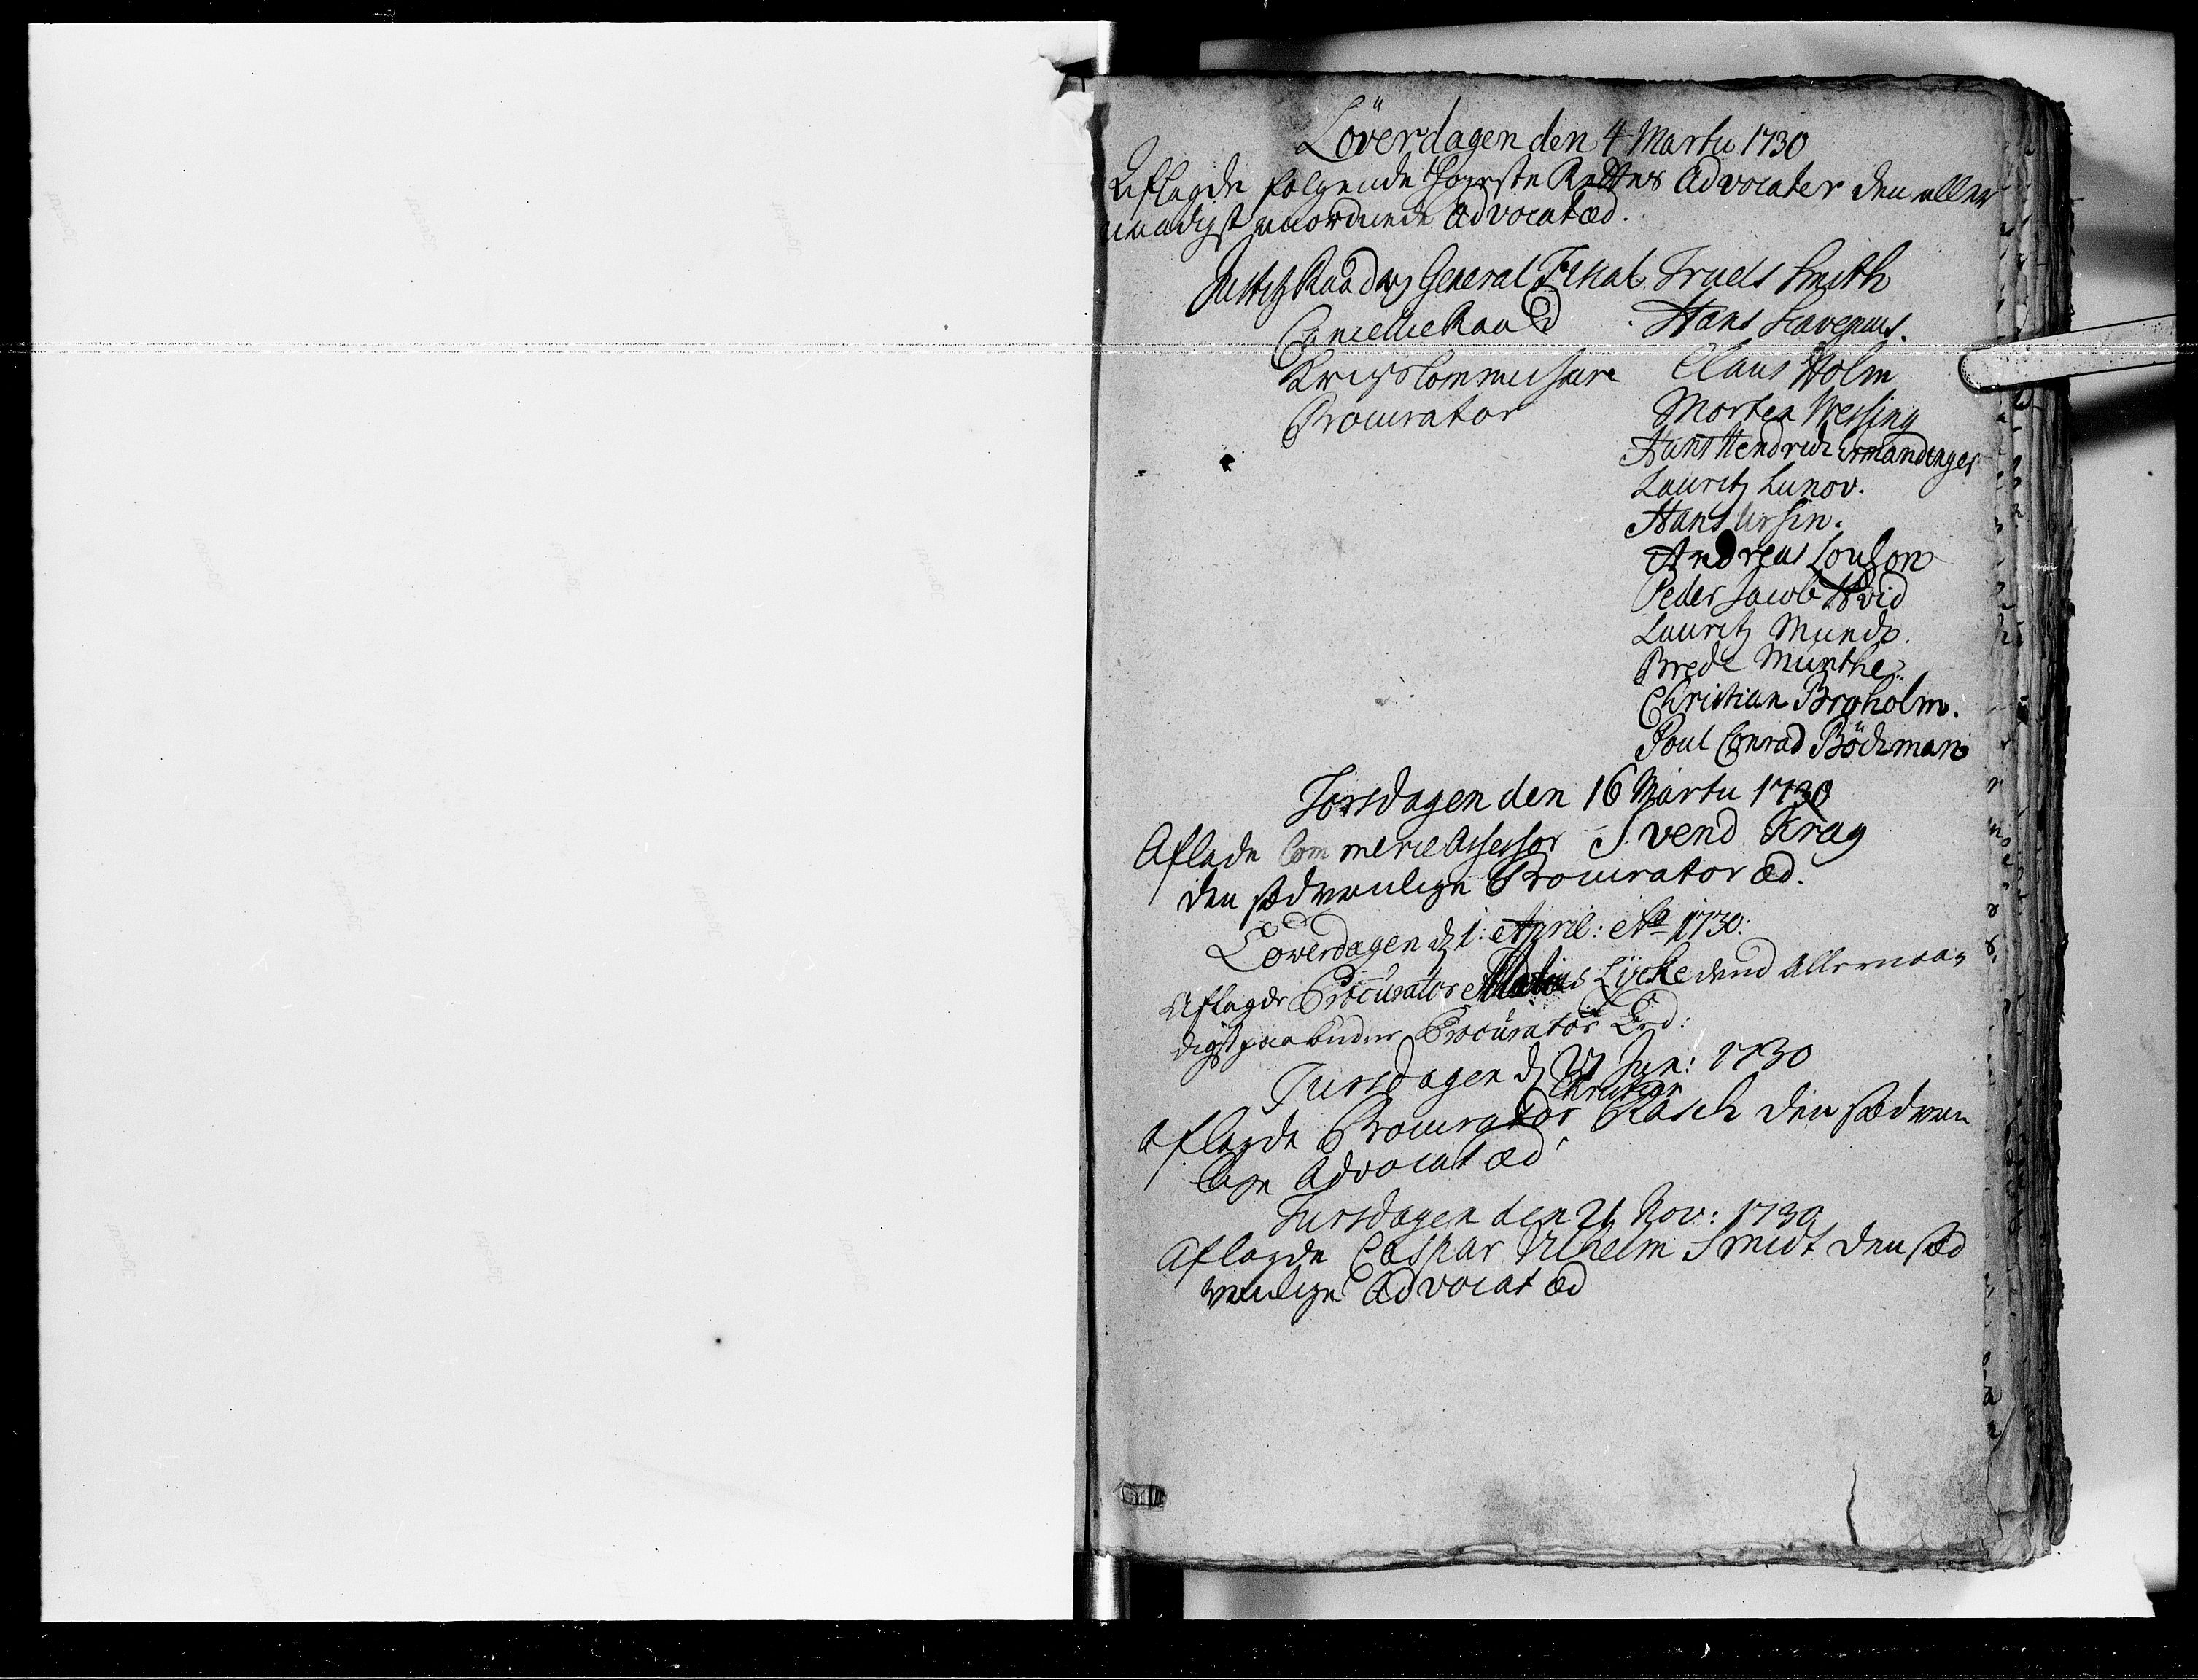 Löverdagen den 4 Martii 1730
Aflagde følgende Høyeste Rettes Advocater den aller
naadigst anordnede Advocat æd.
Justitz Raad og General Fiskal Truels Smith
Cancellie Raad Hans Scavenius.
Krigs Commissarie Claus Holm
Procurator Morten Wessing
Hans Hendrich Ermandinger
Lauritz Lunov.
Hans Ursin.
Andreas Louson
Peder Jacob Hvid
Lauritz Mundt.
Brede Münthe.
Christian Broholm.
Poul Conrad Böckman
Torsdagen den 16 Martii 1730
Aflade Commercie Assessor Svend Krag
den sædvanlige Procurator æd.
Löwerdagen d 1: April: Ao 1730:
Aflagde Procurator Lycke dend Allernaa-
digst paabudne Procurator Eed:
Tirsdagen d 27 Jun: 1730
Christian
aflagde Procurator Rasch den sædvan
lige Advocat æd
Tirsdagen den 21 Nov: 1730
Aflagde Caspar Vilhelm Smidt den sæd
vanlige Advocat æd